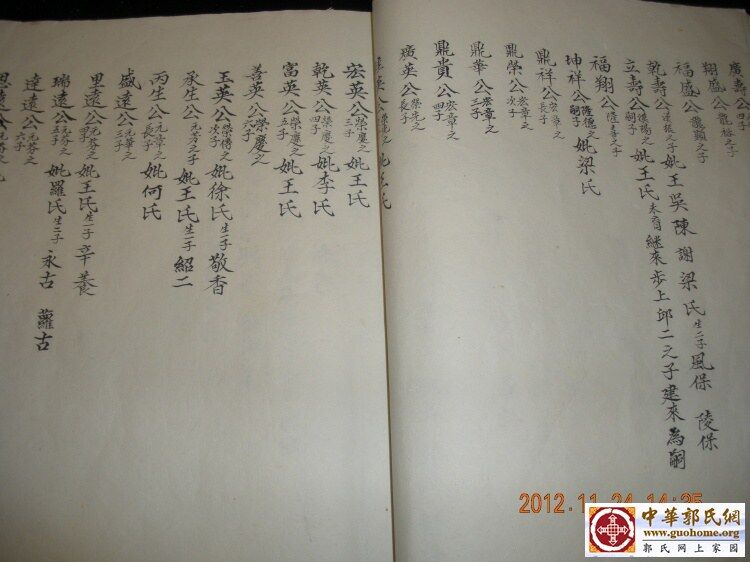 廣壽公
四子
翔盛公龍裕之子
福盛公龍顯之子
乾壽公之子妣王吳陳謝梁氏生二子風保 陵保
立壽公嗣子妣王氏未育継來步上邱二之子建來為嗣
福翔公隆壽之子
坤祥公隆德之嗣子妣梁氏
鼎祥公宏章之長子
鼎榮公宏章之次子
鼎華公宏章之三子
鼎貴公宏章之四子
廣英公榮先之長子
宏英公榮慶之三子妣王氏
乾英公榮慶之四子妣李氏
富英公榮慶之五子妣王氏
善英公榮慶之六子
玉英公榮傳之次子妣徐氏生一子敬香
承生公元芳之子妣王氏生一子紹二
丙生公元章之長子妣何氏
盛遠公元華之三子
里遠公元芬之四子妣王氏生一子辛養
瑞遠公元芬之五子妣羅氏生二子永古 蘿古
達遠公元芬之六子
思遠公
2012.11.24 14:25
中華郭氏網
www.guohome.org
郭氏网上家园